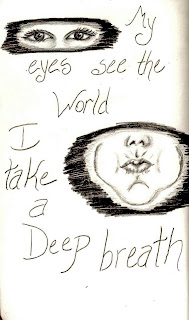 My
eyes see the
World
I
take
a
Deep breath